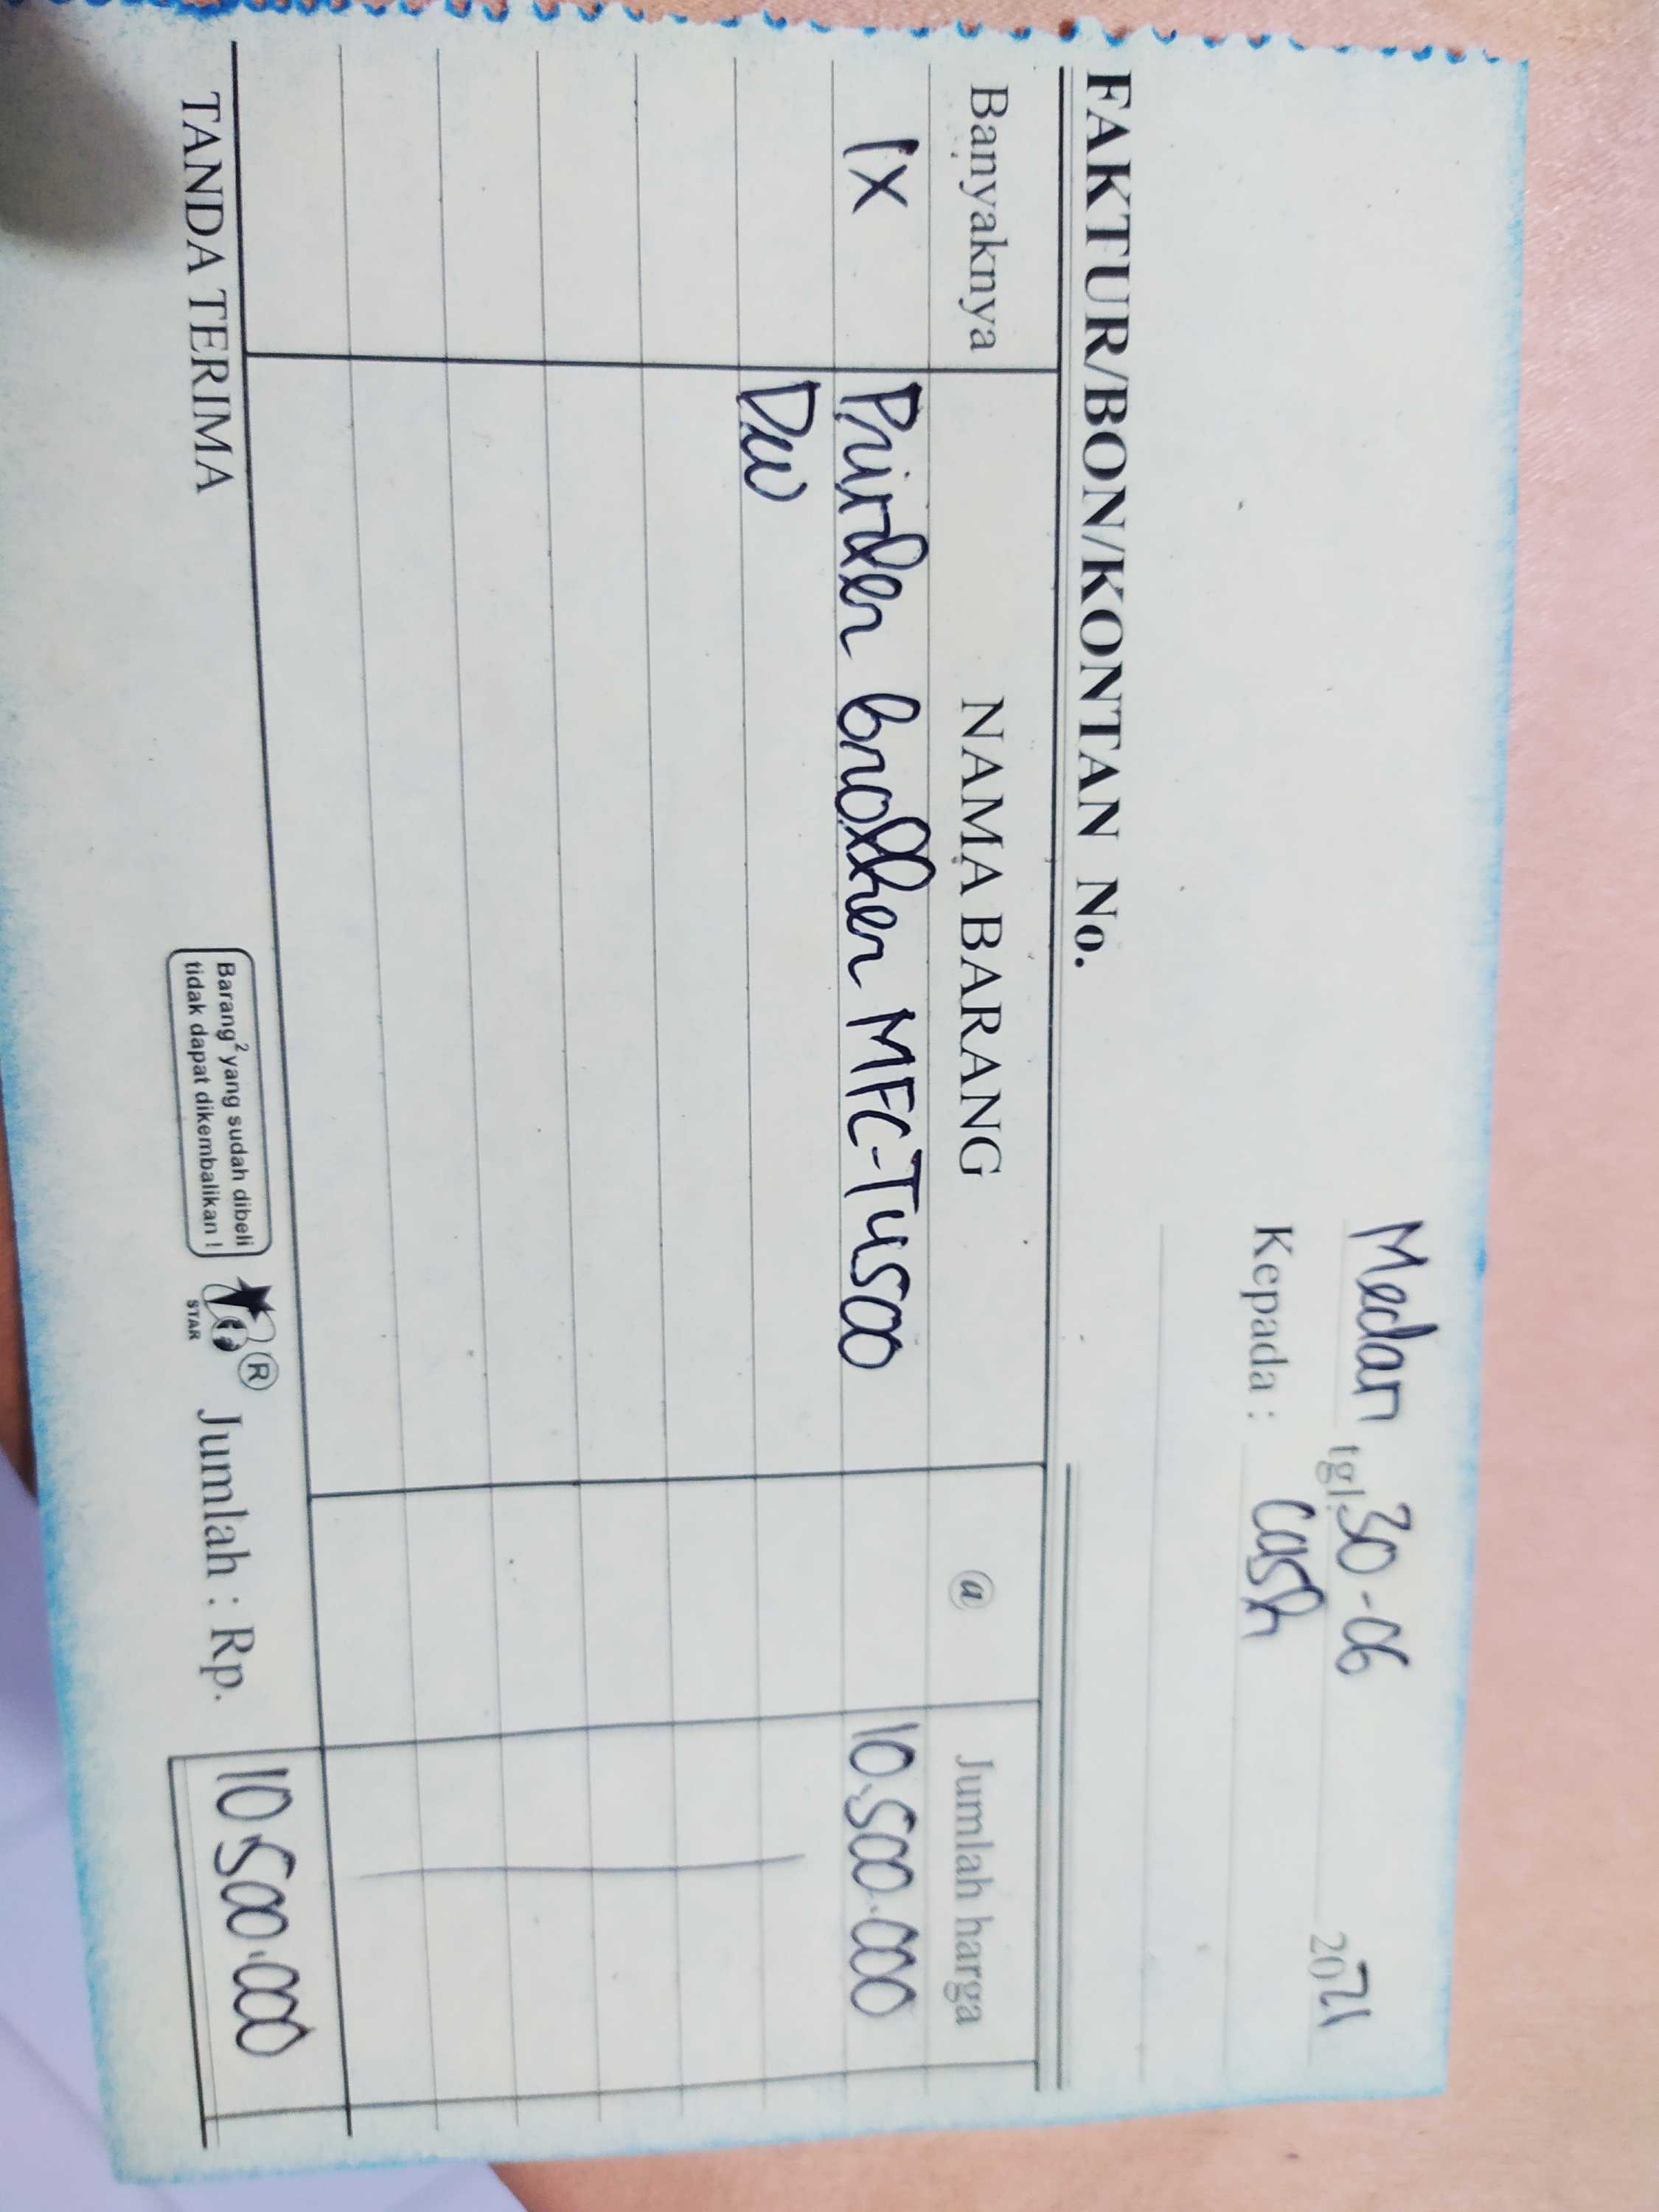 Medan tgl. 30-06 2021
Kepada : Cash
FAKTUR/BON/KONTAN No.
Banyaknya NAMA BARANG @ Jumlah harga
1X Printer brother MFC-T4500 10.500.000
DW
TANDA TERIMA
Barang² yang sudah dibeli
tidak dapat dikembalikan !
STAR
®
Jumlah : Rp. 10.500.000